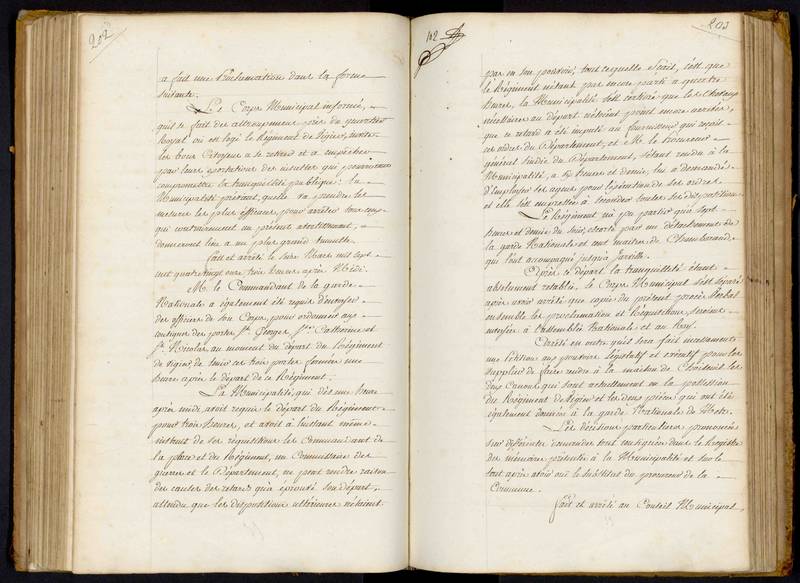 202
a fait une Proclamation dans la forme
suivante.
Le Corps Municipal informé,
qu'il se fait des attroupemens près du quartier
Royal où est logé le Régiment de Vigier, invite
les bons Citoyens a se retirer et a empêcher
par leurs exortations des insultes qui pourraient
compromettre la tranquillité publique; la
Municipalité prévenant qu'elle va prendre les
mesures les plus efficaces, pour arrêter tous ceux
qui contreviendront au présent avertissement,
donneroient lieu a un plus grand tumulte.
fait et arrêté le onze Mars mil sept
cent quatre vingt onze trois heures après Midi.
M. le Commandant de la garde
Nationale a également été requis d'envoyer
des officiers de son Corps, pour ordonner aux
consignes des portes St. Georges, Ste. Catherine et
St. Nicolas au moment du départ du Régiment
de Vigier, de tenir ces trois portes fermées une
heure après le départ de ce Régiment.
La Municipalité, qui dès une heure
après midi, avoit requis le départ du Régiment
pour trois heures, et avoit à l'instant même
instruit de ses réquisitions les Commandant de
la place et du Régiment, un Commissaire des
guerres et le Département, ne peut rendre raison
des causes des retards qu'a éprouvé son départ,
attendu que les dispositions ultérieures n'étaient
102
203
pas en son pouvoir, tout ce qu'elle sçait, c'est que
le Régiment n'étant pas encore parti a quatre
heures, la Municipalité s'est assurée que les Chevaux
nécessaires au départ n'étoient point encore arrivés,
que ce retard a été imputé au fournisseur qui reçoit
ses ordres du Département, et M. le Procureur
général Sindic du Département, s'étant rendu à la
Municipalité, a 4 heures et demie, lui a demandé
d'employer ses agens pour l'exécution de ses ordres
et elle s'est empressée à seconder toutes ses dispositions.
Le Régiment n'a pu partir qu'à sept
heures et demie du soir, escorté par un détachement de
la garde Nationale et cent maitres de Chamborand,
qui l'ont accompagné jusqu'à
Après ce départ la tranquillité étant
absolument rétablie, le Corps Municipal s'est séparé
après avoir arrêté que copie du présent procès Verbal
ensemble les proclamation et Réquisitions, seroient
envoyées à l'assemblée Nationale et au Roy.
Arrêté en outre qu'il sera fait incessamment
une Pétition aux pouvoirs législatif et exécutif pour les
supplier de faire rendre à la maison de Choiseuil les
deux Canons qui sont actuellement en la possession
du Régiment de Vigier et les deux pièces qui ont été
également données à la garde Nationale de Metz.
Les décisions particulières prononcées
sur différentes demandes sont consignées dans le Registre
des mémoires présentés à la Municipalité et sur le
tout après avoir ouï le substitut du procureur de la
Commune.
fait et arrêté au Conseil Municipal